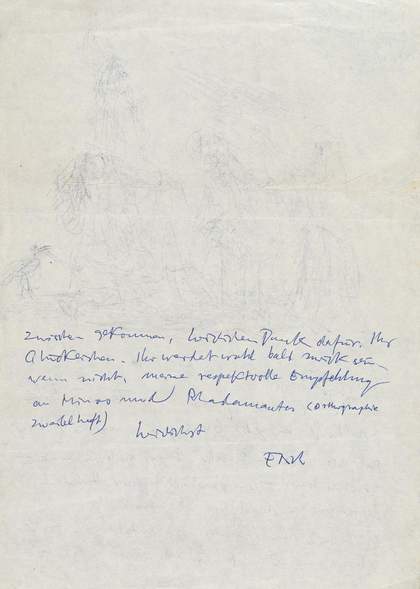 zwischen gekommen, herzlichen Dank dafür. Ihr
Glücklichen. Ihr werdet wohl bald zurück sein –
wenn nicht, meine respektvolle Empfehlung
an Minos und Rhadamantes (Orthographie
zweifelhaft)
herzlichst